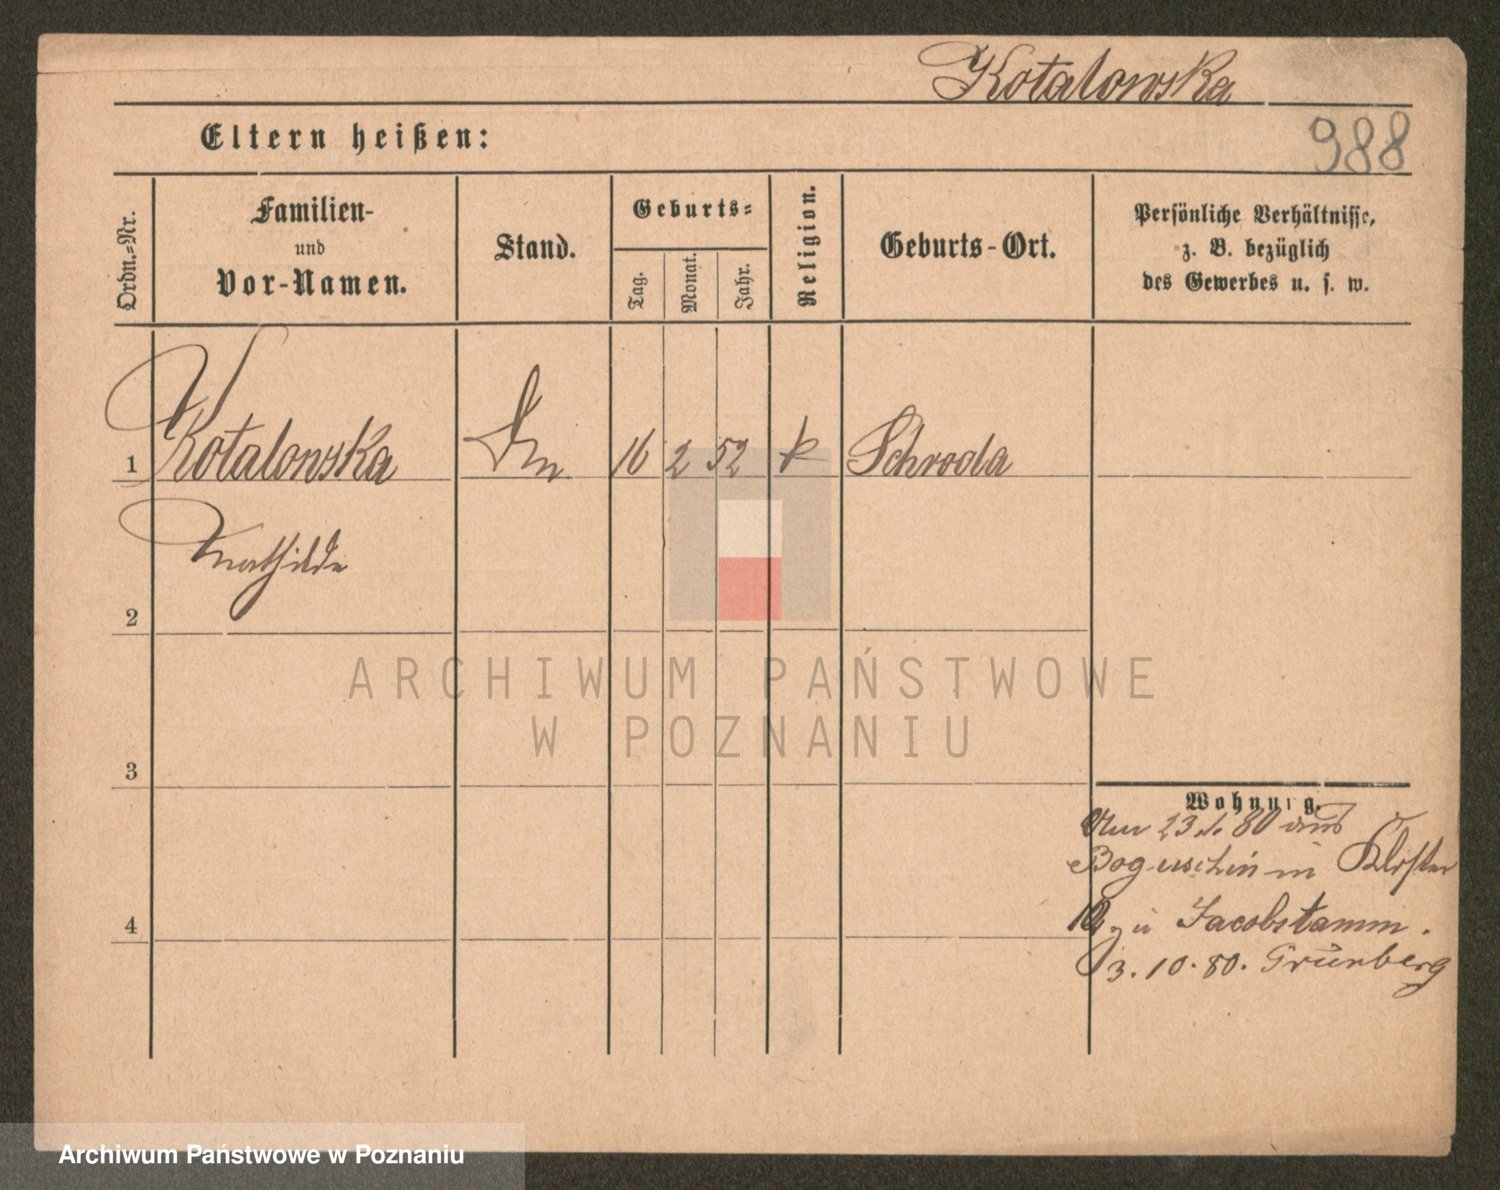 Kotalowska
988
Eltern heißen:
Ordn.-Nr.
Familien-
und
Vor-Namen.
Stand.
Geburts-
Tag.
Monat.
Jahr.
Religion.
Geburts-Ort.
Persönliche Verhältnisse,
z. B. bezüglich
des Gewerbes u. s. w.
1 Kotalowska 16 2 52 k Schroda
Mathilde
2
ARCHIWUM PAŃSTWOWE
W POZNANIU
3
Wohnung.
23 80 aus
Boguschin in Kloster
4
zu Jacobstamm.
3. 10. 80. Grünberg
Archiwum Państwowe w Poznaniu